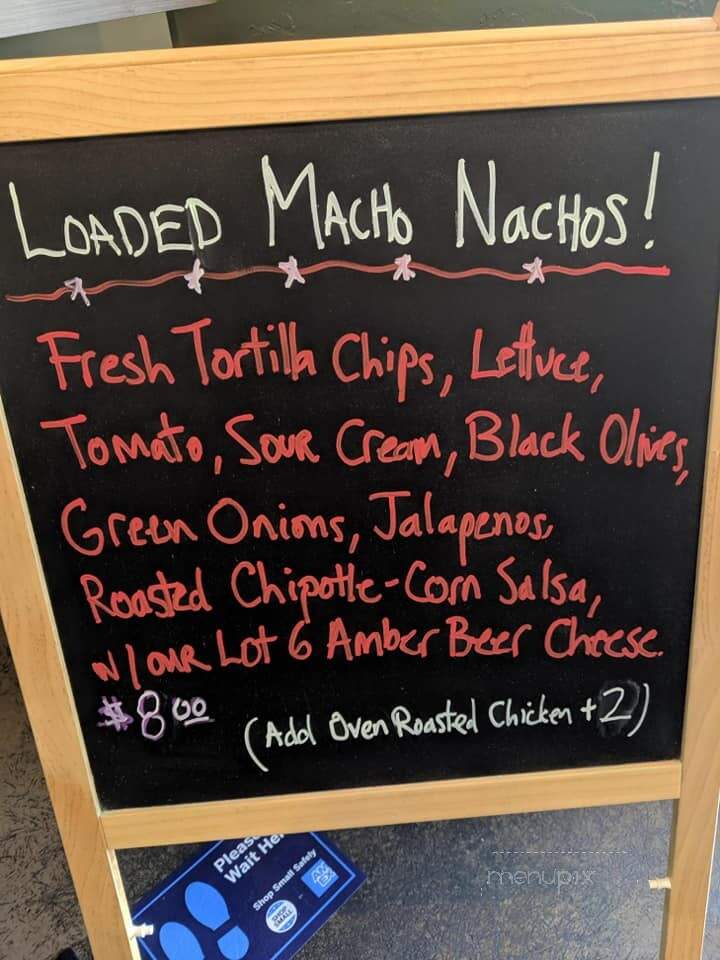 LOADED MACHO NACHOS!
Fresh Tortilla Chips, Lettuce,
Tomato, Sour Cream, Black Olives,
Green Onions, Jalapenos,
Roasted Chipotle-Corn Salsa,
w/our Lot 6 Amber Beer Cheese.
$8.00
(Add Oven Roasted Chicken +2)
Please
Wait He
Shop Small Safely
SHOP
SMALL
AM
EX
menupix